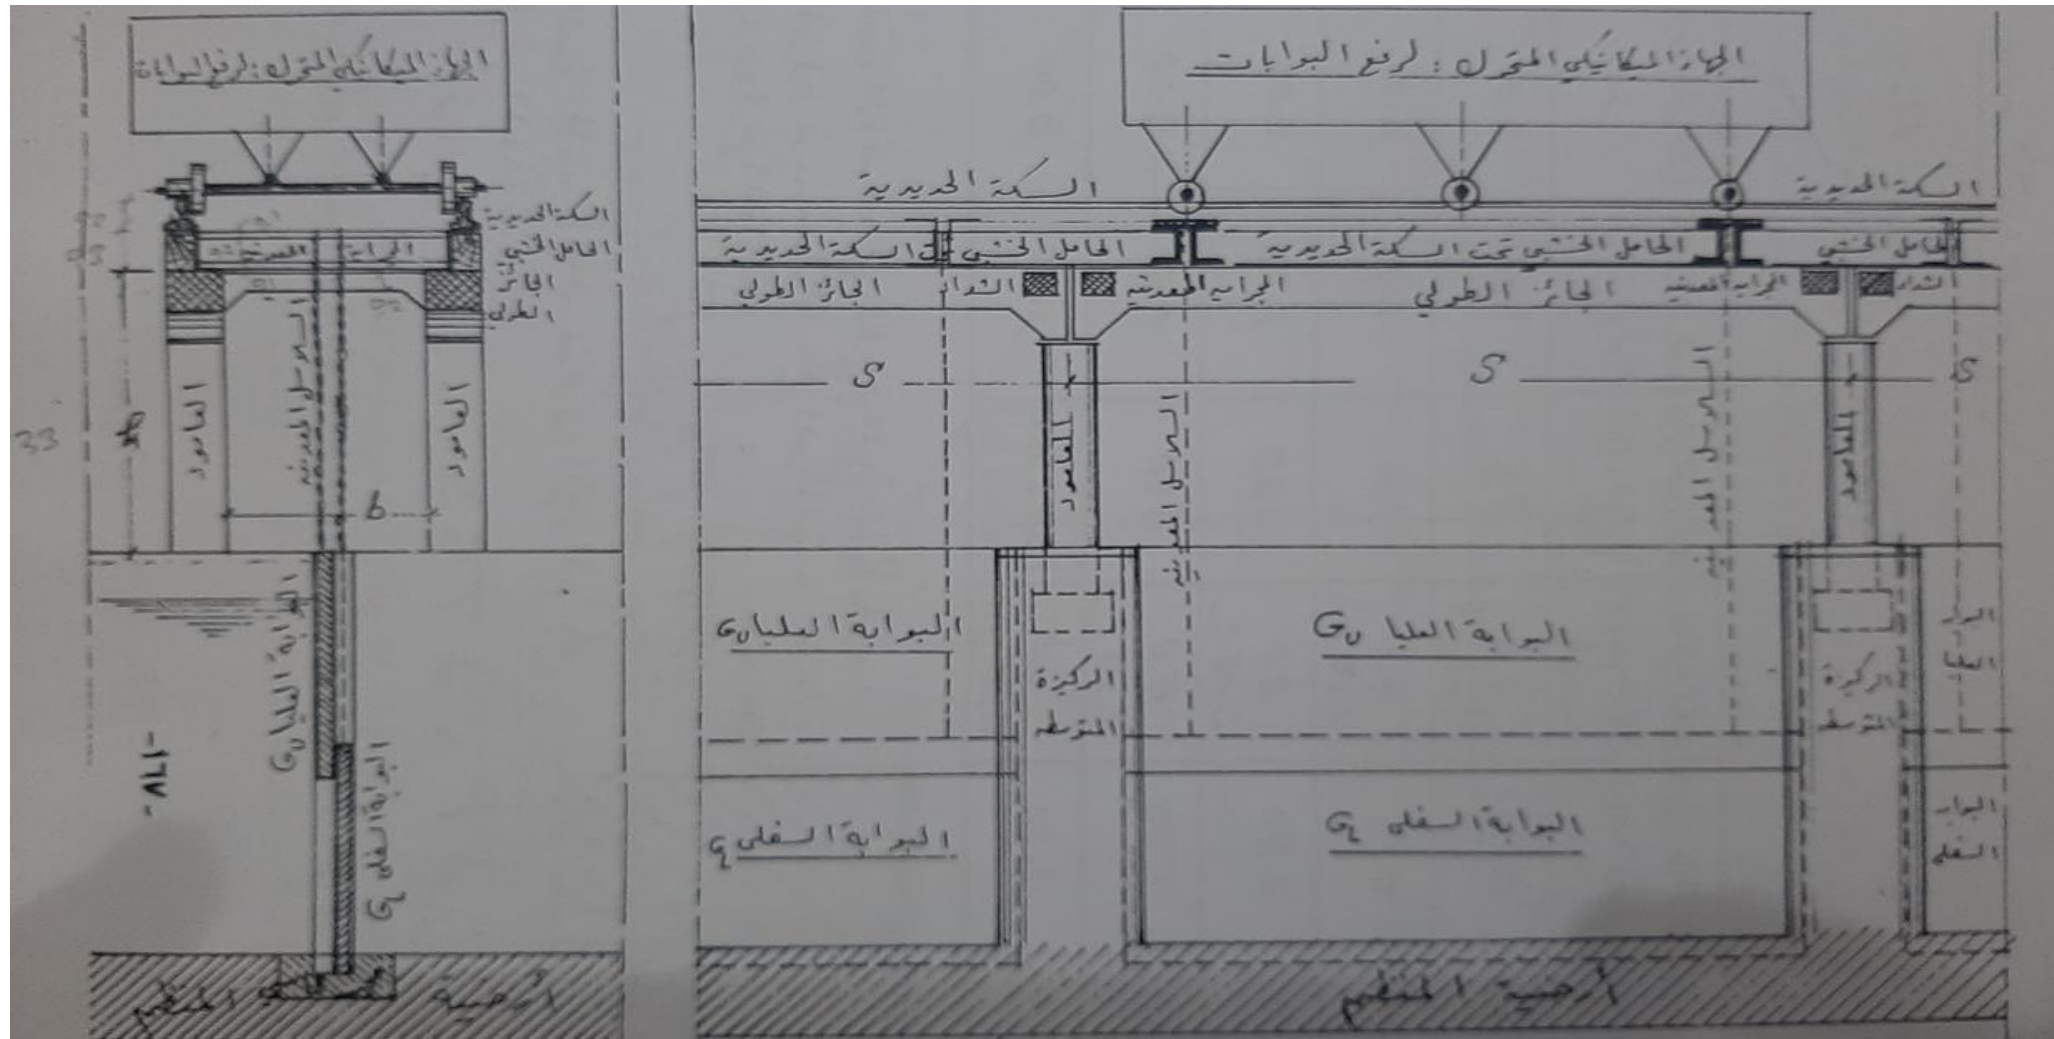 الجهاز الميكانيكي المتحرك : لرفع البوابات
السكة الحديدية
الحامل الخشبي
الجائز
الطولي
العامود
السلاسل المعدنية
العامود
b
33
البوابة العليا Gu
البوابة السفلى GL
- ١٦٧ -
أرضية المنظم
الجهاز الميكانيكي المتحرك : لرفع البوابات
السكة الحديدية
السكة الحديدية
الحامل الخشبي تحت السكة الحديدية
الحامل الخشبي تحت السكة الحديدية
الحامل الخشبي
الجائز الطولي
الشداد
المجراية المعدنية
الجائز الطولي
المجراية المعدنية
الشداد
S
S
S
العامود
السلاسل المعدنية
السلاسل المعدنية
العامود
البوابة العليا Gu
الركيزة
المتوسطه
البوابة العليا Gu
الركيزة
المتوسطه
البوا
العليا
البوابة السفلى GL
البوابة السفلى GL
البواب
السفلى
أرضية المنظم